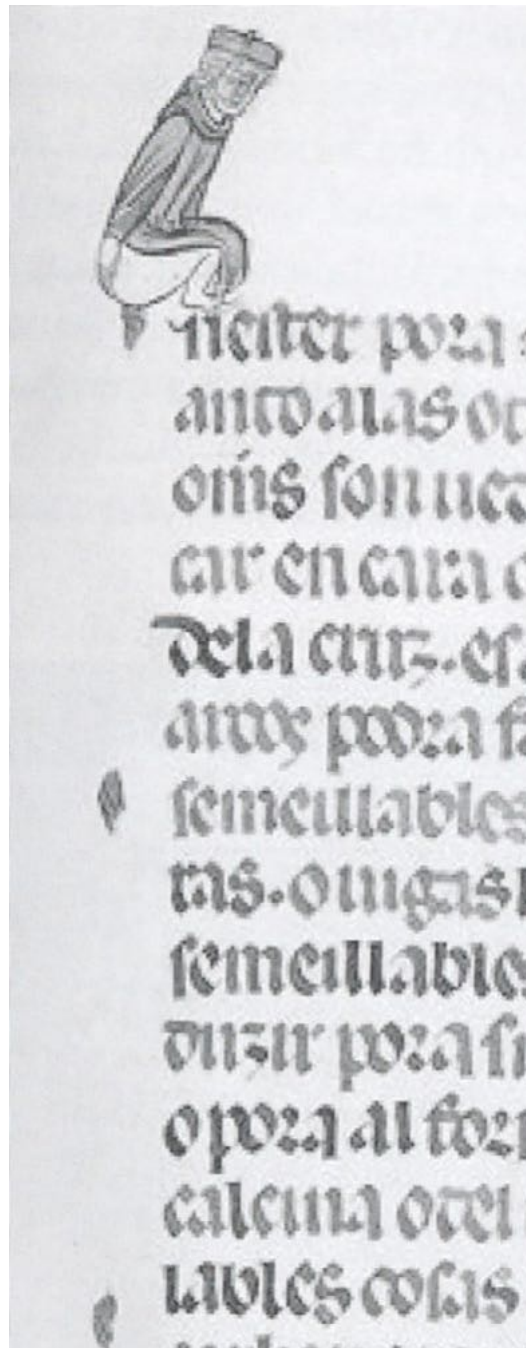 neiter pora
anto alas ot
oms son ueo
car en cara
dela cruz. esa
podra fa
semeillables
tas. o uigas
semeillables
duzir pora si
o pora al forn
calcina otel
lables cosas